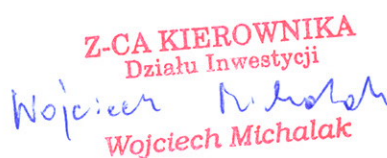 Z-CA KIEROWNIKA
Działu Inwestycji
Wojciech Michalak
Wojciech Michalak